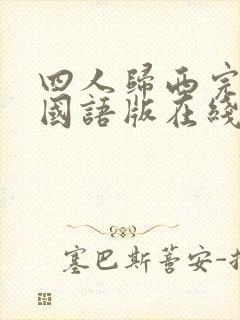 四人歸西完
國語版在綫
塞巴斯蒈安-指